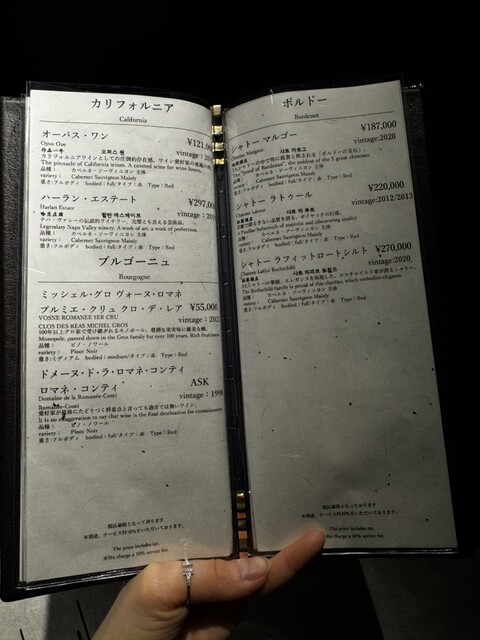 カリフォルニア
California
オーパス・ワン
Opus One
¥121,0
作品一号 오퍼스 원
vintage:20
カリフォルニアワインとしての圧倒的存在感、ワイン愛好家の
The pinnacle of California wines. A coveted wine for wine lovers.
品種： カベルネ・ソーヴィニヨン 主体
variety： Cabernet Sauvignon Mainly
重さ:フルボディ bodied：full/タイプ：赤 Type：Red
ハーラン・エステート
Harlan Estate
¥297,00
할란 에스테이트
vintage:20
ナパ・ヴァレーの伝説的ワイナリー。完璧とも言える芸術品。
Legendary Napa Valley winery. A work of art, a work of perfection.
品種： カベルネ・ソーヴィニヨン 主体
variety： Cabernet Sauvignon Mainly
重さ:フルボディ bodied：full/タイプ：赤 Type：Red
ブルゴーニュ
Bourgogne
ミッシェル・グロ ヴォーヌ・ロマネ
プルミエ・クリュ クロ・デ・レア
¥55,000
VOSNE ROMANEE 1ER CRU
vintage：202
CLOS DES REAS MICHEL GROS
100年以上グロ家で受け継がれるモノポール。豊潤な果実味に優美な酸。
Monopole, passed down in the Gros family for over 100 years. Rich fruitiness
品種： ピノ・ノワール
variety： Pinot Noir
重さ:ミディアム bodied：medium/タイプ：赤 Type：Red
ドメーヌ・ド・ラ・ロマネ・コンティ
ロマネ・コンティ
ASK
Domaine de la Romanée-Conti
vintage：199
Romanée-Conti
愛好家が最後にたどりつく終着点と言っても過言では無いワイン。
It is no exaggeration to say that wine is the final destination for connoisseurs.
品種： ピノ・ノワール
variety： Pinot Noir
重さ:フルボディ bodied：full/タイプ：赤 Type：Red
税込価格となって居ります
※別途、サービス料10%をいただいております。
The price includes tax.
※We charge a 10% service fee.
ボルドー
Bordeaux
シャトー マルゴー
¥187,000
Chateau Margaux
샤토 마르고
vintage:2020
5大シャトーの中で特に高貴と称される「ボルドーの宝石」。
The "jewel of Bordeaux", the noblest of the 5 great chateaux
品種： カベルネ・ソーヴィニヨン 主体
variety： Cabernet Sauvignon Mainly
重さ:フルボディ bodied：full/タイプ：赤 Type：Red
シャトー ラトゥール
¥220,000
Chateau Latour
샤토 라 투르
vintage:2012/2013
a Pauillac behemoth of majesty and unwavering quality.
品種： カベルネ・ソーヴィニヨン 主体
variety： Cabernet Sauvignon Mainly
重さ:フルボディ bodied：full/タイプ：赤 Type：Red
シャトー ラフィットロートシルト
¥270,000
Chateau Lafite Rothschild
vintage:2020
The Rothschild family is proud of this chateau, which embodies elegance.
品種： カベルネ・ソーヴィニヨン 主体
variety： Cabernet Sauvignon Mainly
重さ:フルボディ bodied：full/タイプ：赤 Type：Red
税込価格となって居ります
※別途、サービス料10%をいただいております。
The price includes tax.
※We charge a 10% service fee.